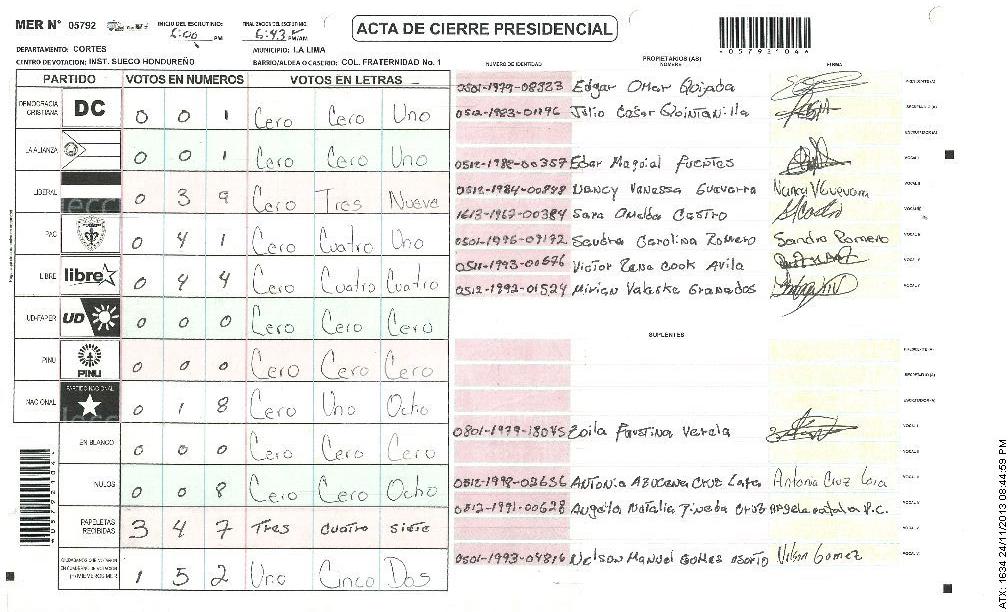 MER N° 05792
INICIO DEL ESCRUTINIO: 5:00 PM
FINALIZACION DEL ESCRUTINIO: 6:43 PM/AM
ACTA DE CIERRE PRESIDENCIAL
05792104
DEPARTAMENTO: CORTES
MUNICIPIO: LA LIMA
CENTRO DE VOTACION: INST. SUECO HONDUREÑO
BARRIO/ALDEA O CASERIO: COL. FRATERNIDAD No. 1
PARTIDO VOTOS EN NUMEROS VOTOS EN LETRAS
DEMOCRACIA CRISTIANA DC 0 0 1 Cero Cero Uno
LA ALIANZA 0 0 1 Cero Cero Uno
LIBERAL 0 3 9 Cero Tres Nueve
PAC 0 4 1 Cero Cuatro Uno
LIBRE libre 0 4 4 Cero Cuatro Cuatro
UD-FAPER UD 0 0 0 Cero Cero Cero
PINU PINU 0 0 0 Cero Cero Cero
NACIONAL PARTIDO NACIONAL 0 1 8 Cero Uno Ocho
EN BLANCO 0 0 0 Cero Cero Cero
NULOS 0 0 8 Cero Cero Ocho
PAPELETAS RECIBIDAS 3 4 7 Tres cuatro siete
1 5 2 Uno Cinco Dos
NUMERO DE IDENTIDAD PROPIETARIOS (AS) NOMBRE FIRMA
0501-1979-08323 Edgar Omar Quijada
0512-1983-01796 Julio Cesar Quintanilla
0512-1982-00357 Edar FUENTES
0512-1984-00848 Nancy Vanessa Guevarra Nancy VGuevara
1613-1967-00384 Sara Castro
0501-1996-09192 Sandra Carolina Romero Sandra Romero
0511-1993-00676 Victor Cook Avila
0512-1992-01524 Mirian Granados
SUPLENTES
0801-1979-18045 Zoila Faustina Varela
0512-1998-03636 Antonia AZUCENA CRUZ Antonia Cruz
0512-1991-00628 Natalia Pineda CRUZ
0501-1993-04816 Nelson Manuel Gomes Nelson Gomez
ATX: 1634-24/11/2013 08:44:59 PM